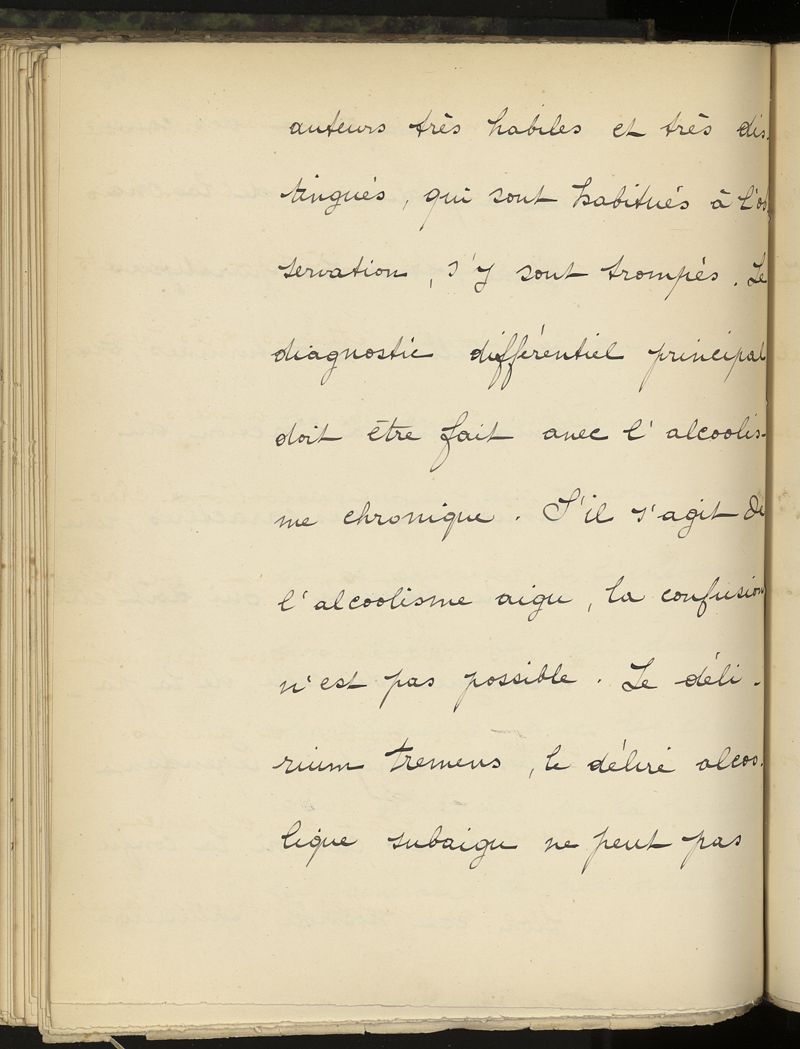 auteurs très habiles et très dis-
tingués, qui sont habitués à l'ob
servation, s'y sont trompés. Le
diagnostic différentiel principal
doit être fait avec l'alcoolis-
me chronique. S'il s'agit de
l'alcoolisme aigu, la confusion
n'est pas possible. Le déli-
rium tremens, le délire alcoo-
lique subaigu ne peut pas